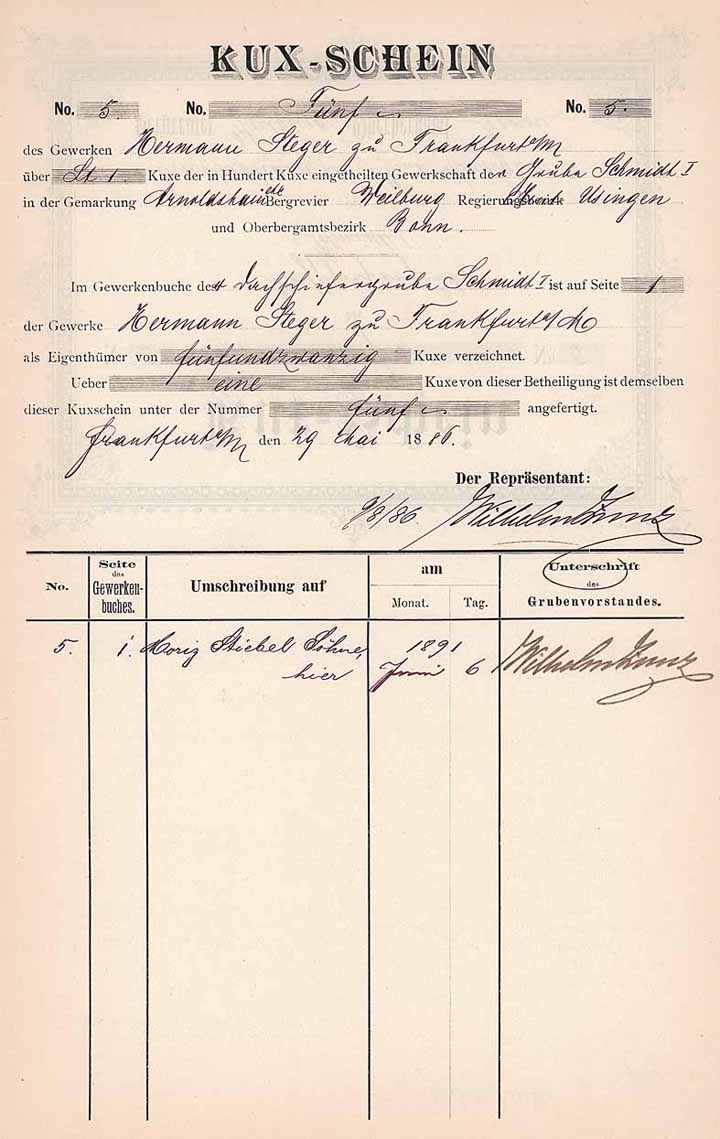 KUX-SCHEIN
No. 5. No. Fünf No. 5.
des Gewerken Hermann Steger zu Frankfurt a/M
über St 1. Kuxe der in Hundert Kuxe eingetheilten Gewerkschaft der Grube Schmidt I
in der Gemarkung Arnoldshain etc Bergrevier Weilburg Regierungsbezirk Usingen
und Oberbergamtsbezirk Bonn.
Im Gewerkenbuche der Dachschiefergrube Schmidt I ist auf Seite 1
der Gewerke Hermann Steger zu Frankfurt a/M
als Eigenthümer von fünfundzwanzig Kuxe verzeichnet.
Ueber eine Kuxe von dieser Betheiligung ist demselben
dieser Kuxschein unter der Nummer fünf angefertigt.
Frankfurt a/M den 29 Mai 1886.
Der Repräsentant:
9/8/86.
No. Seite des Gewerken-buches. Umschreibung auf am Monat. Tag. Unterschrift des Grubenvorstandes.
5. 1. Moriz Stiebel Söhne, 1891
hier Juni 6